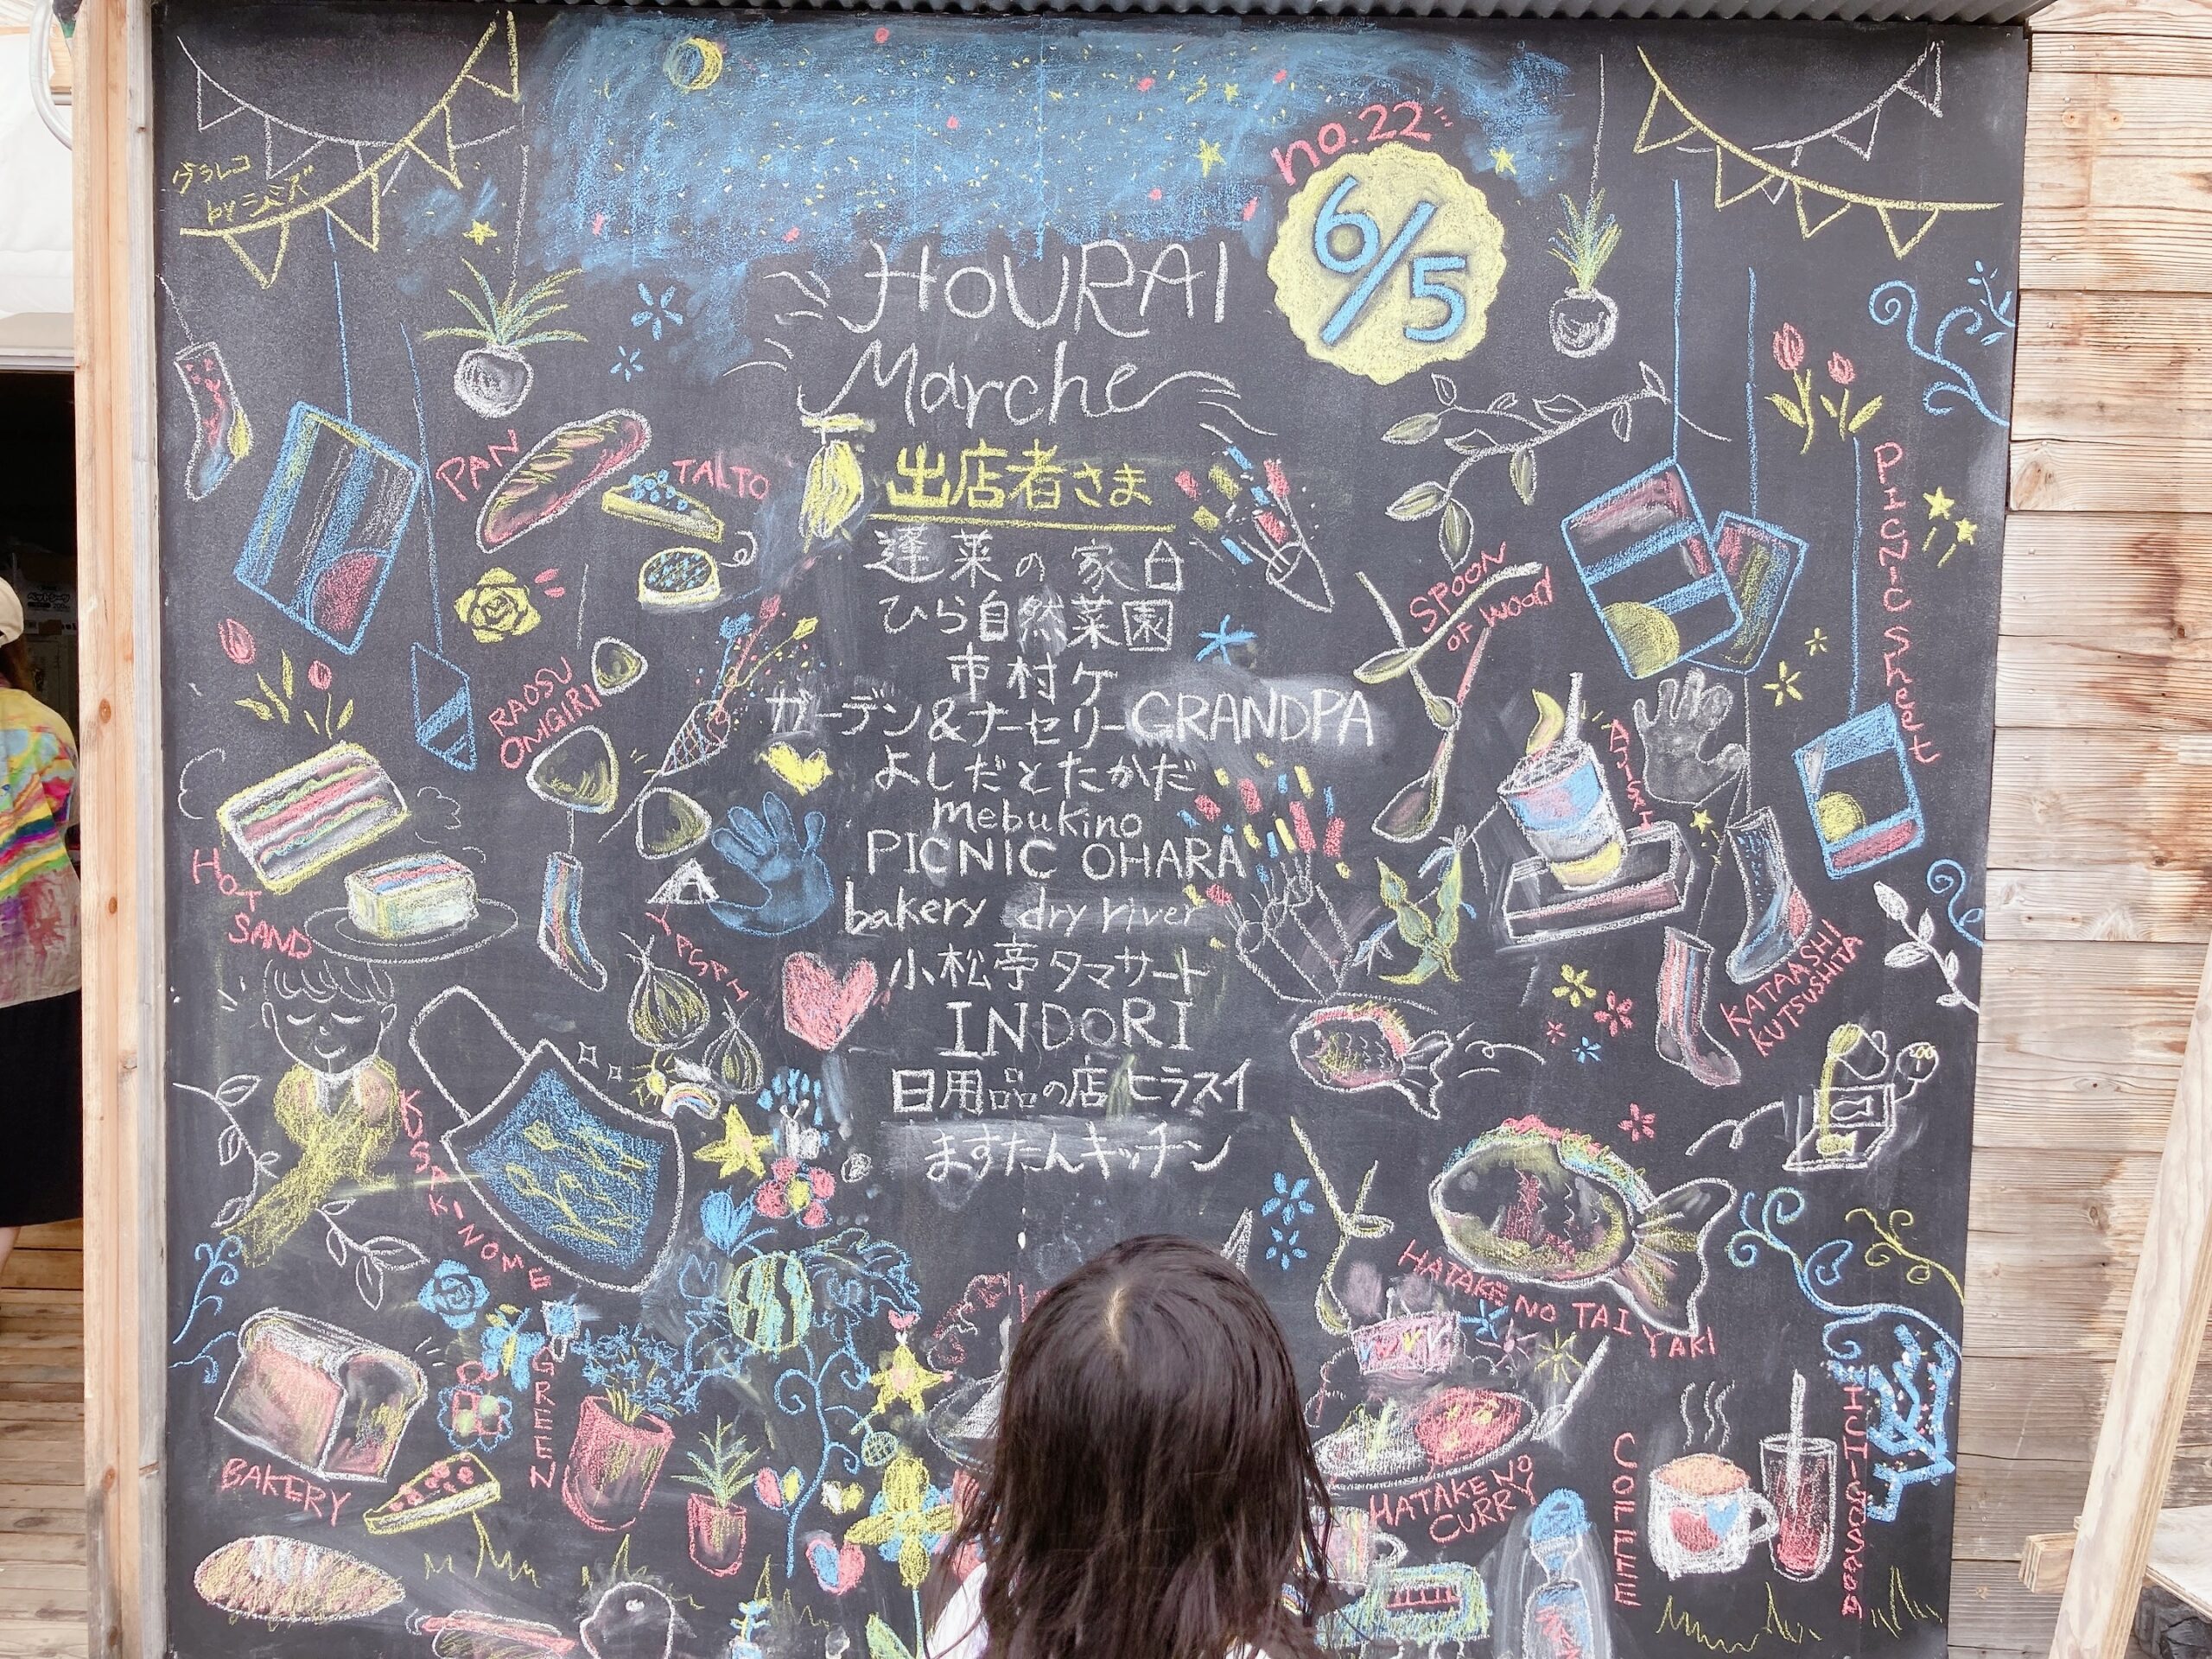 グラレコ
by シミズ
no.22
6/5
HOURAI
Marche
出店者さま
蓬莱の家白
ひら自然菜園
市村ケ
ガーデン&ナーセリーGRANDPA
よしだとたかだ
mebukino
PICNIC OHARA
bakery dry river
小松亭タマサート
INDORI
日用品の店ヒラスイ
ますたんキッチン
PAN
TALTO
RAOSU
ONIGIRI
HOT
SAND
YASAI
KUSAKINOME
BAKERY
GREEN
SPOON
OF WOOD
PICNIC Sheet
AJISAI
KATAASHI
KUTSUSHITA
HATAKE NO TAIYAKI
HATAKE NO
CURRY
COFFEE